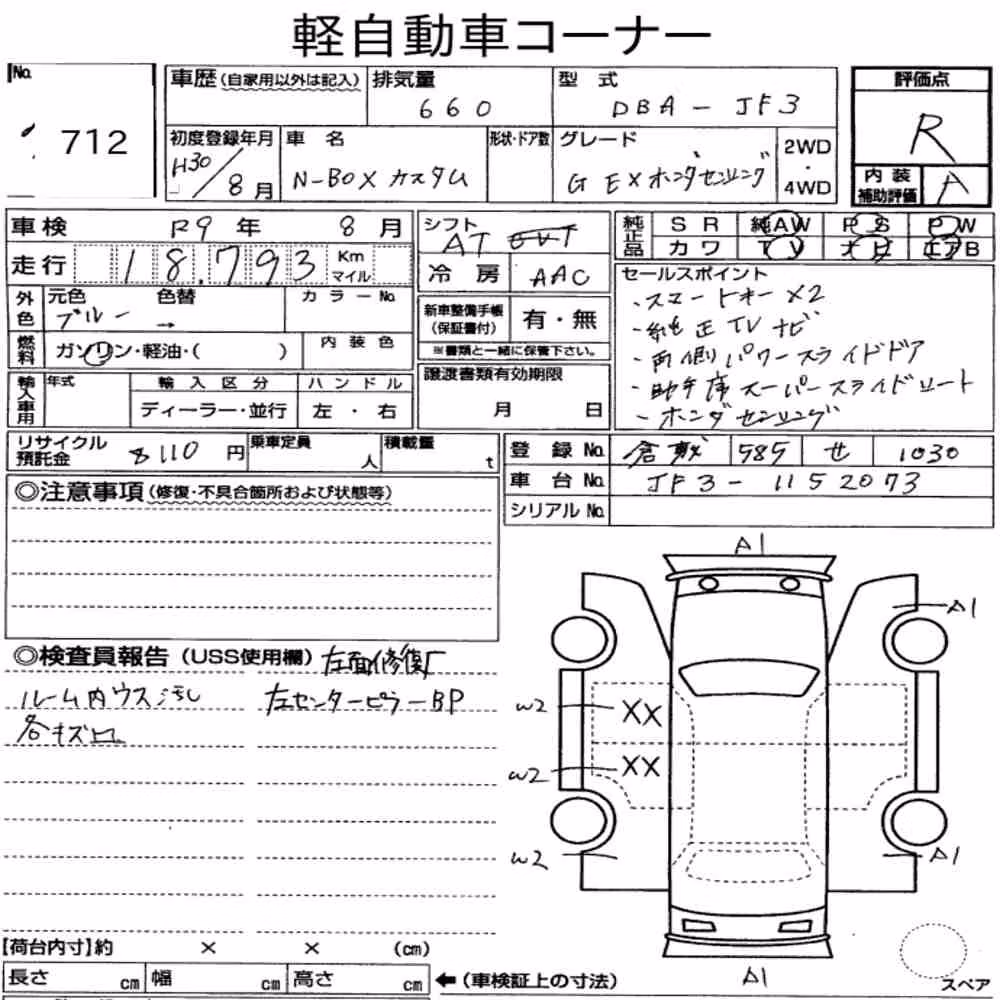 軽自動車コーナー
No. 712
車歴(自家用以外は記入) 排気量 660 型式 DBA-JF3 評価点 R
初度登録年月 H30/8月 車名 N-BOXカスタム 形状・ドア数 グレード G EXホンダセンシング 2WD・4WD 内装補助評価 A
車検 R9年 8月 シフト AT 純正品 SR 純AW PS PW
カワ TV ナビ エアB
走行 18,793 Km マイル 冷房 AAC
セールスポイント
・スマートキーX2
・純正TVナビ
・両側パワースライドドア
・助手席スーパースライドシート
・ホンダセンシング
外色 元色 ブルー 色替 → カラーNo. 新車整備手帳(保証書付) 有・無
※書類と一緒に保管下さい。
燃料 ガソリン・軽油・( ) 内装色
譲渡書類有効期限 月 日
輸入車用 年式 輸入区分 ハンドル
ディーラー・並行 左・右
リサイクル預託金 8110円 乗車定員 人 積載量 t
登録No. 倉敷 585 せ 1030
車台No. JF3-1152073
シリアルNo.
◎注意事項(修復・不具合箇所および状態等)
◎検査員報告(USS使用欄) 左面修復
ルーム内ウス汚し 左センターピラーBP
各キズ凹
A1
A1
W2 XX
W2 XX
W2 A1
A1
【荷台内寸】約 × × (cm)
長さ cm 幅 cm 高さ cm ←(車検証上の寸法) スペア